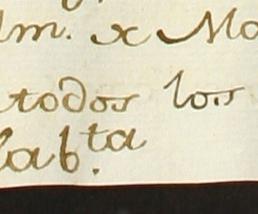 lm. x Mo
todos los
lab.ta